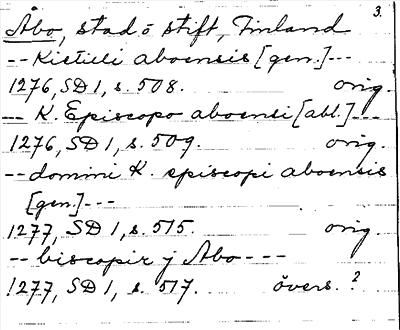 3.
Åbo, stad o stift, Finland
-- Kietilli aboensis [gen.] ---
1276, SD 1, s. 508. orig.
-- K. Episcopo aboensi [abl.] ---
1276, SD 1, s. 509. orig.
-- domini K. episcopi aboensis
[gen.] ---
1277, SD 1, s. 515. orig.
-- biscopir j Abo ----
1277, SD 1, s. 517. övers. ?